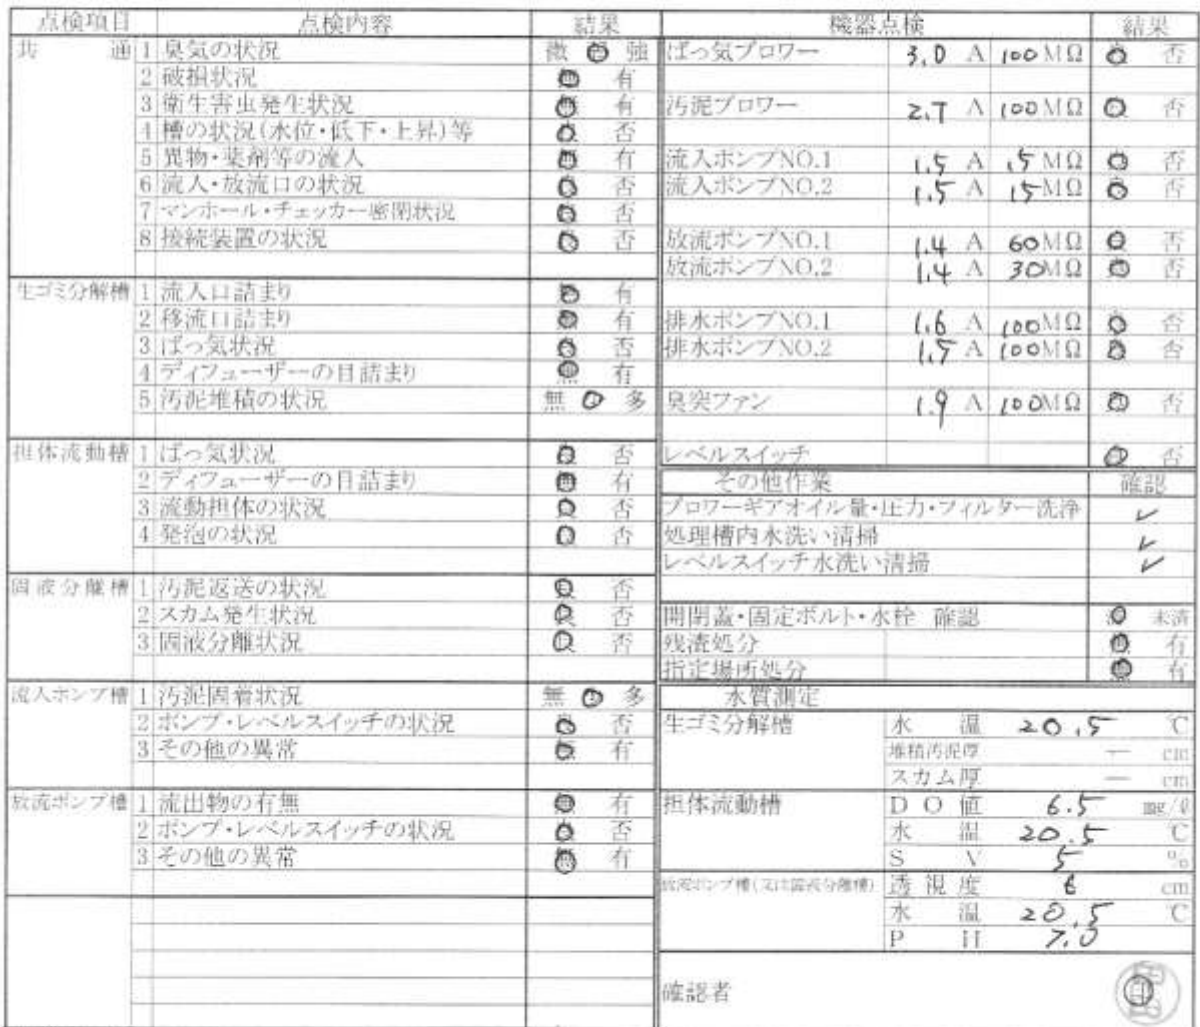 点検項目 点検内容 結果
共 通 1 臭気の状況 微 強
2 破損状況 有
3 衛生害虫発生状況 有
4 槽の状況(水位・低下・上昇)等 否
5 異物・薬剤等の流入 有
6 流入・放流口の状況 否
7 マンホール・チェッカー密閉状況 否
8 接続装置の状況 否
生ゴミ分解槽 1 流入口詰まり 有
2 移流口詰まり 有
3 ばっ気状況 否
4 ディフューザーの目詰まり 無 有
5 汚泥堆積の状況 無 多
担体流動槽 1 ばっ気状況 否
2 ディフューザーの目詰まり 有
3 流動担体の状況 否
4 発泡の状況 否
固液分離槽 1 汚泥返送の状況 否
2 スカム発生状況 否
3 固液分離状況 否
流入ポンプ槽 1 汚泥固着状況 無 多
2 ポンプ・レベルスイッチの状況 否
3 その他の異常 有
放流ポンプ槽 1 流出物の有無 有
2 ポンプ・レベルスイッチの状況 否
3 その他の異常 有
機器点検 結果
ばっ気ブロワー 3.0 A 100 MΩ 否
汚泥ブロワー 2.7 A 100 MΩ 否
流入ポンプNO.1 1.5 A 15 MΩ 否
流入ポンプNO.2 1.5 A 15 MΩ 否
放流ポンプNO.1 1.4 A 60 MΩ 否
放流ポンプNO.2 1.4 A 30 MΩ 否
排水ポンプNO.1 1.6 A 100 MΩ 否
排水ポンプNO.2 1.5 A 100 MΩ 否
臭突ファン 1.9 A 100 MΩ 否
レベルスイッチ 否
その他作業 確認
ブロワーギアオイル量・圧力・フィルター洗浄 ✓
処理槽内水洗い清掃 ✓
レベルスイッチ水洗い清掃 ✓
開閉蓋・固定ボルト・水栓 確認 未済
残渣処分 有
指定場所処分 有
水質測定
生ゴミ分解槽 水 温 20.5 ℃
堆積汚泥厚 — cm
スカム厚 — cm
担体流動槽 D O 値 6.5 mg/ℓ
水 温 20.5 ℃
S V 5 %
放流ポンプ槽(又は固液分離槽) 透視度 6 cm
水 温 20.5 ℃
P H 7.0
確認者 印